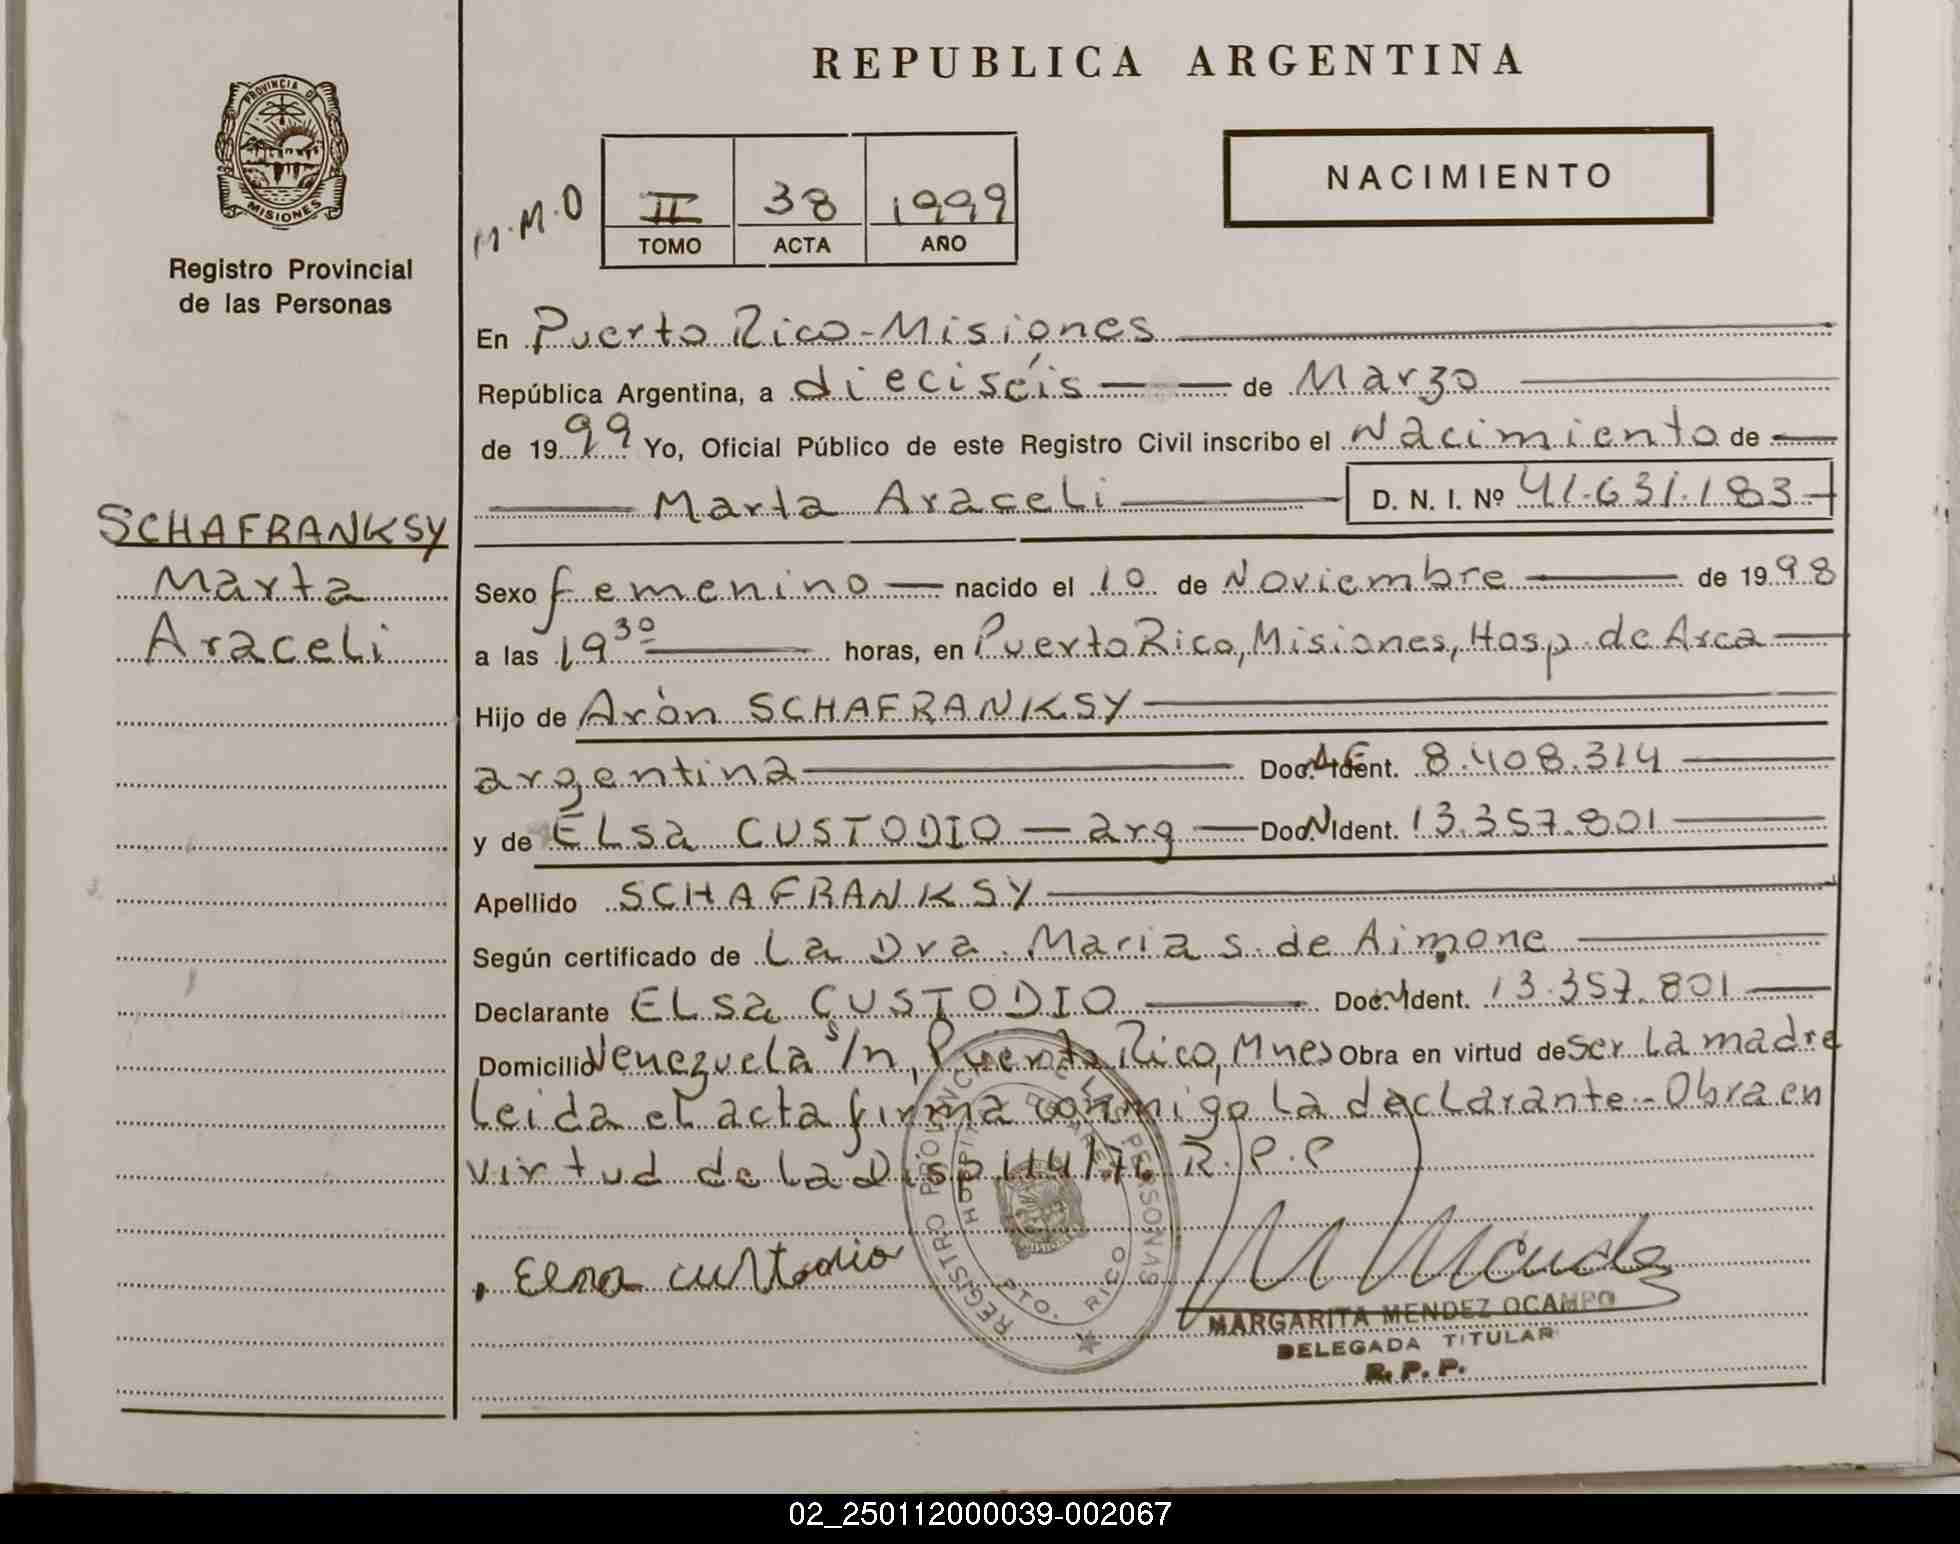 REPUBLICA ARGENTINA
PROVINCIA DE
MISIONES
Registro Provincial
de las Personas
M.M.O
II 38 1999
TOMO ACTA AÑO
NACIMIENTO
En Puerto Rico-Misiones
República Argentina, a dieciséis de Marzo
de 1999 Yo, Oficial Público de este Registro Civil inscribo el Nacimiento de
Marta Araceli D. N. I. Nº 41.631.183
SCHAFRANKSY
Marta
Araceli
Sexo femenino nacido el 10 de Noviembre de 1998
a las 19 30 horas, en Puerto Rico, Misiones, Hosp. de Area
Hijo de Arón SCHAFRANKSY
argentina Doc. Ident. 8.408.314
y de ELsa CUSTODIO - arg Doc. N Ident. 13.357.801
Apellido SCHAFRANKSY
Según certificado de La Dra. Maria S. de Aimone
Declarante ELsa CUSTODIO Doc. Ident. 13.357.801
Domicilio Venezuela s/n, Puerto Rico, Mnes Obra en virtud de ser La madre
Leida el acta firma conmigo La declarante.- Obra en
virtud de La Disp 114/76 R.P.P
Elsa custodio
REGISTRO PROVINCIAL DE LAS PERSONAS
HOSPITAL DE AREA
PTO. RICO
MARGARITA MENDEZ OCAMPO
DELEGADA TITULAR
R. P. P.
02_250112000039-002067